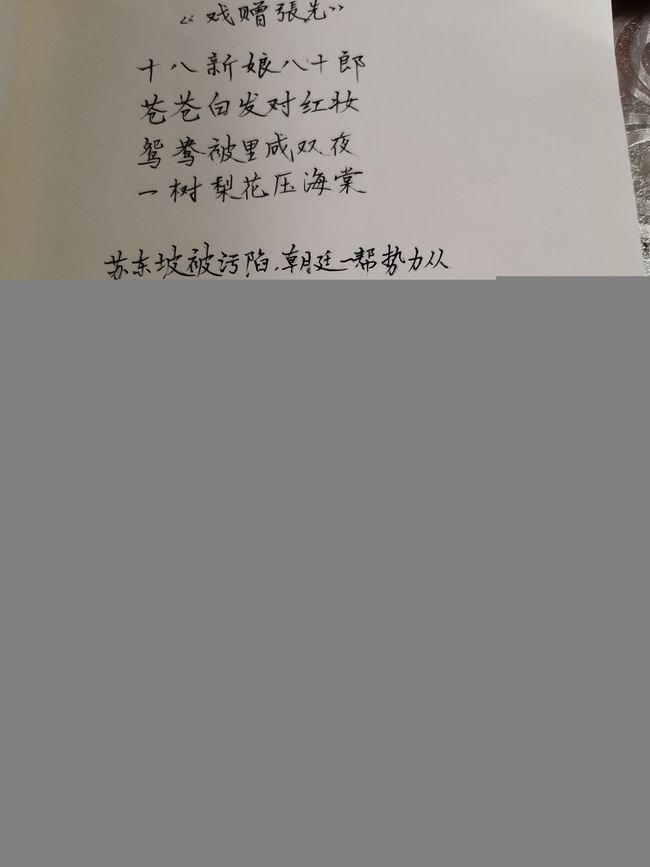 《戏赠張先》
十八新娘八十郎
苍苍白发对红妆
鸳鸯被里成双夜
一树梨花压海棠
苏东坡被污陷,朝廷一帮势力从